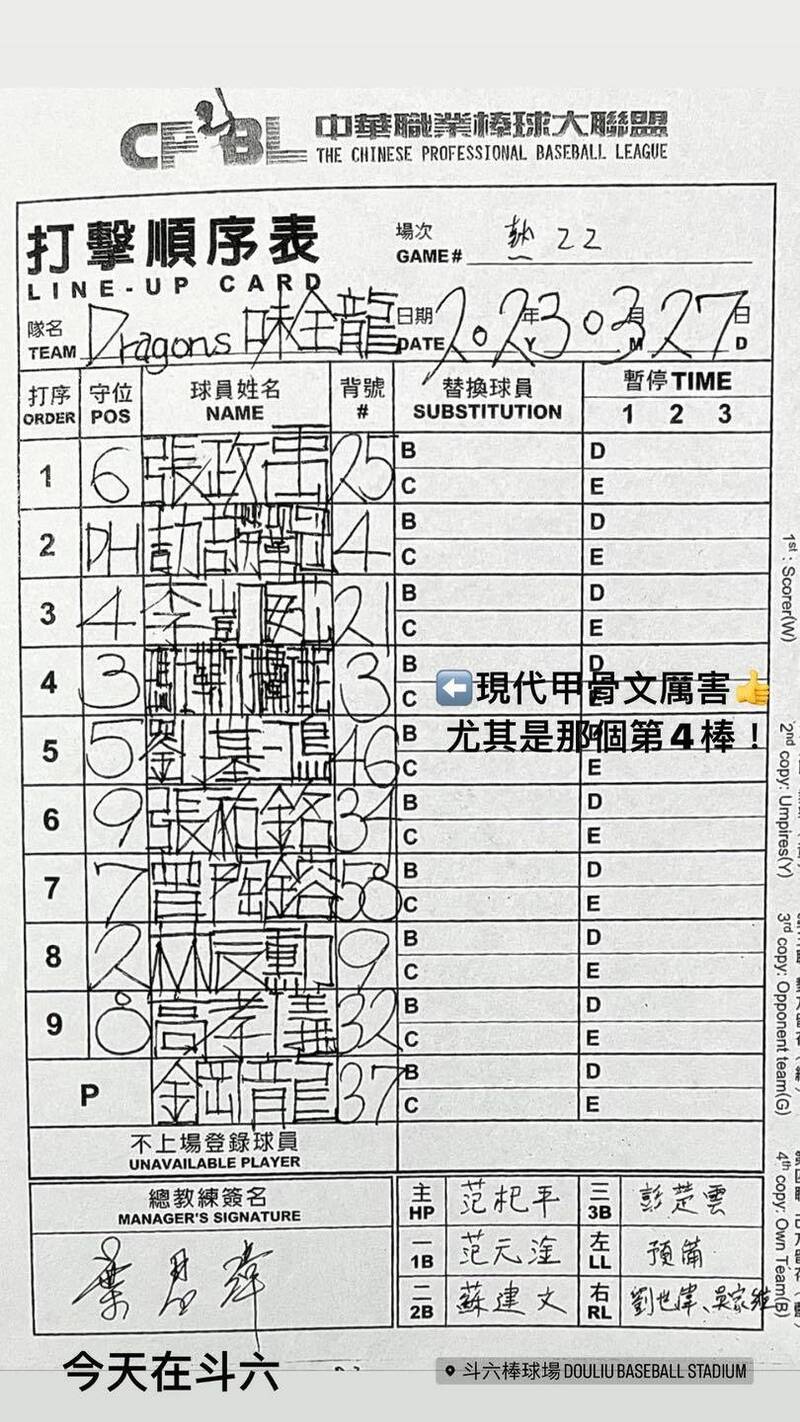 CPBL 中華職業棒球大聯盟
THE CHINESE PROFESSIONAL BASEBALL LEAGUE
打擊順序表
LINE-UP CARD
場次
GAME# 熱22
隊名
TEAM Dragons 味全龍
日期 年 月 日
DATE 2023 03 27 Y M D
打序 守位 球員姓名 背號 替換球員 暫停 TIME
ORDER POS NAME # SUBSTITUTION 1 2 3
1 6 張政禹 25 B D
C E
2 DH 4 B D
C E
3 4 李凱威 21 B D
C E
4 3 3 B D
C E
⬅️現代甲骨文厲害👍
尤其是那個第4棒！
5 5 劉基鴻 46 B D
C E
6 9 張祐銘 34 B D
C E
7 7 曾陶鎔 58 B D
C E
8 2 林辰勳 9 B D
C E
9 8 高孝儀 32 B D
C E
P 鋼龍 37 B D
C E
不上場登錄球員
UNAVAILABLE PLAYER
總教練簽名
MANAGER'S SIGNATURE
葉君璋
主 HP 范杞平 三 3B 彭楚雲
一 1B 范元淦 左 LL 預備
二 2B 蘇建文 右 RL 劉世偉、吳家維
1st : Scorer(W)
2nd copy: Umpires(Y)
3rd copy: Opponent team(G)
4th copy: Own Team(B)
今天在斗六
斗六棒球場 DOULIU BASEBALL STADIUM